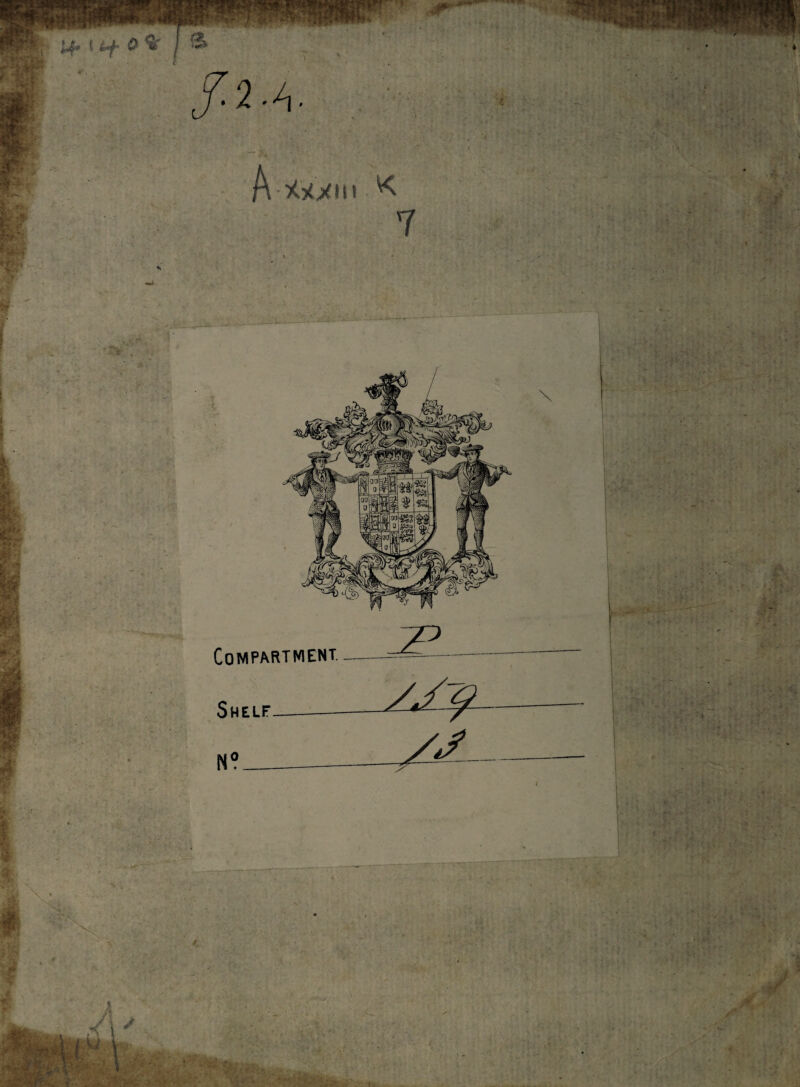 41408/B
J.2.4.
A xxxiii K
7
COMPARTMENT. P
SHELF 159
Nº 13